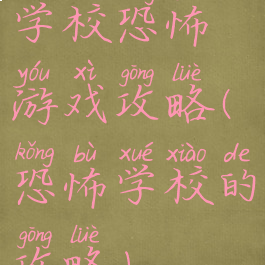 学校恐怖
yóu xì gōng lüè
游戏攻略(
kǒng bù xué xiào de
恐怖学校的
gōng lüè
攻略)